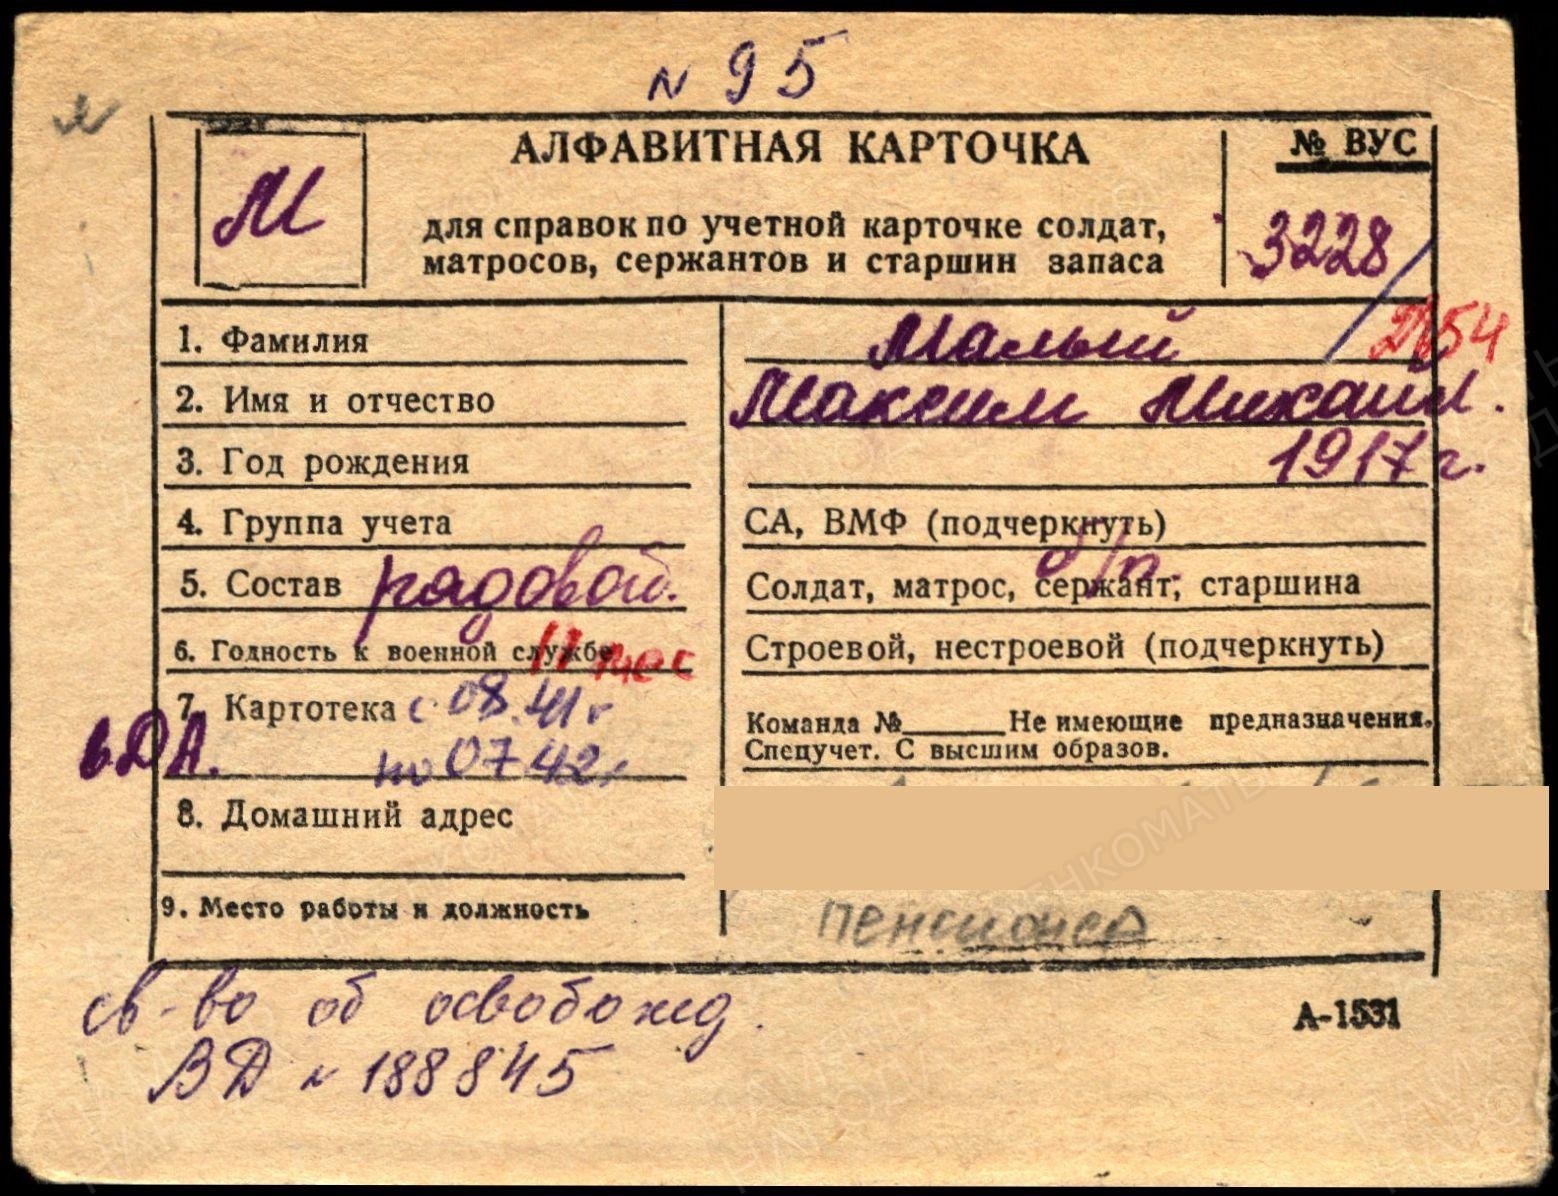 № 95
АЛФАВИТНАЯ КАРТОЧКА
№ ВУС
М
для справок по учетной карточке солдат,
матросов, сержантов и старшин запаса
3228/
1. Фамилия Малый
2. Имя и отчество Максим Михайл.
3. Год рождения 1917 г.
4. Группа учета СА, ВМФ (подчеркнуть)
5. Состав рядовой. Солдат, матрос, сержант, старшина
б/п.
6. Годность к военной службе Строевой, нестроевой (подчеркнуть)
11 мес
7. Картотека с 08.41г Команда №______Не имеющие предназначения.
в ДА. по 07.42г Спецучет. С высшим образов.
8. Домашний адрес
9. Место работы и должность пенсионер
св-во об освобожд.
А-1531
ВД № 188845